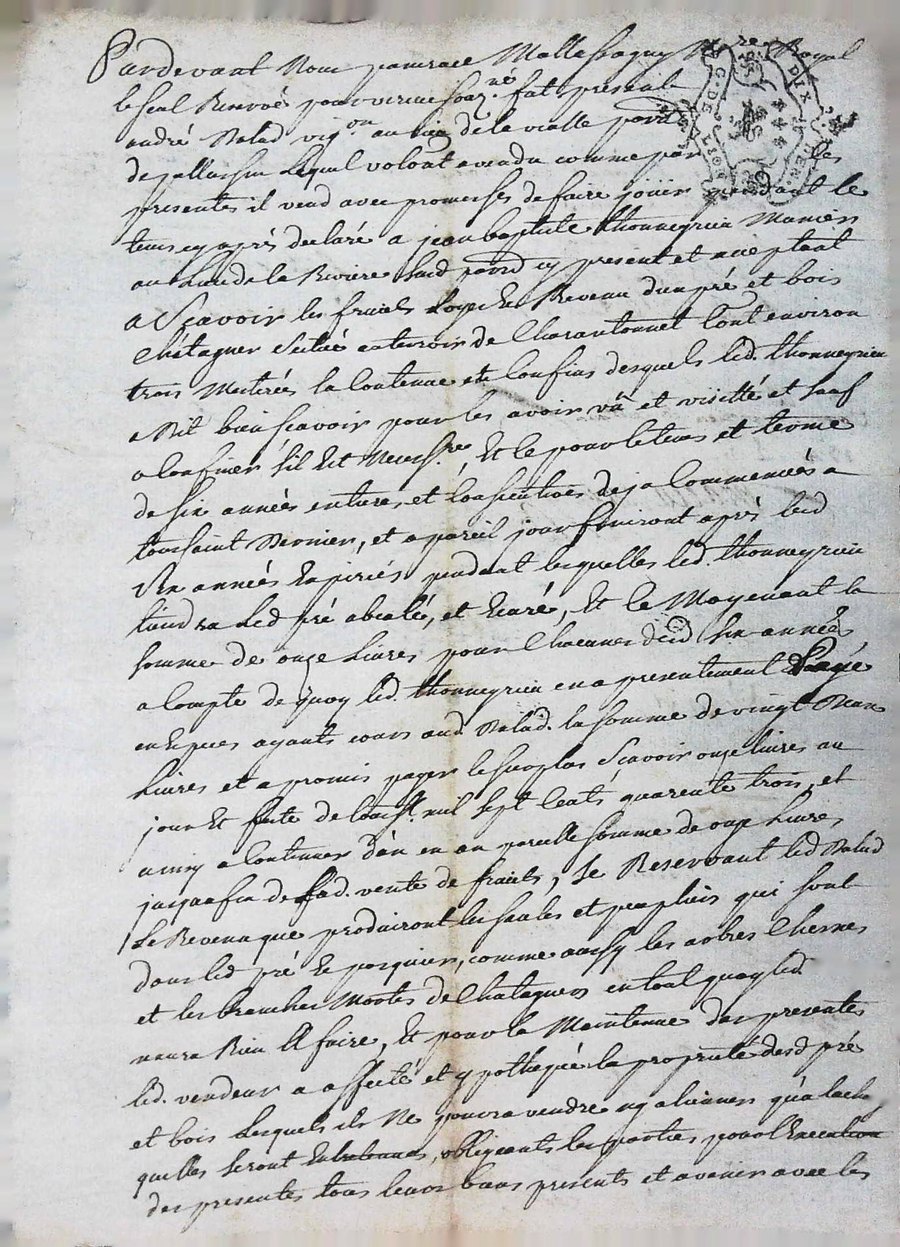 Pardevant Nous pancrace Mollessaguy N.re Royal
le seal Renvoé pour vertu soaz.né fat present
andré Balad vig.on au lieu de la vialle par.d
de lequel volont a vendu comme par les
presentes il vend avec promesses de faire jouir pendant le
tems cy après declaré a jean baptiste thonneyrieu Munier
au lieu de la Riviere susd par.d cy present et acceptant
a Scavoir les fruits Et Revenu dun pré et bois
Chatagner Scitué au terroir de Charantonnet Cont environ
trois Meiterés la Contenue et Confins desquels led. thonneyrieu
a Dit bien Scavoir pour les avoir vû et visitté et sauf
a Confiner s'il Est Necess.re Et ce pour le tems et terme
de six années entieres et Consecutives deja Commencées a
toussaint Dernier, et a pareil jour finiront après lesd
six années Expirées pendant lesquelles led. thonneyrieu
tiendra led pré et Ecuré, Et le Moyenant la
somme de onze Livres pour Chacunes desd six années
a Compte de quoy led. thonneyrieu en a presentement Payé
en Especes ayants cours aud. Balad. la somme de vingt Deux
Livres et a promis payer le surplus Scavoir onze livres au
jour Et feste de touss.t mil sept Cents quarente trois, et
ainsy a Continuer d'an en an pareille somme de onze Livres
jusqua fin de lad. vente de fruits, Se Reservant led Balad
Le Revenu que produiront les saules et peupliers qui sont
dans led pré Et pasquier, comme aussy les arbres Chesnes
et les branches Mortes de Chatagners en tout quoy led
naura Rien A faire, Et pour la Maintenue des presentes
led. vendeur a affecté et ypotheque la propriété desd pré
et bois Lesquels ils Ne pourra vendre ny aliener qua
quelles seront Entretenues, obligeants les parties pour l'Execution
des presentes tous leurs biens presents et avenir avec les
G. DE
DIX DEN.